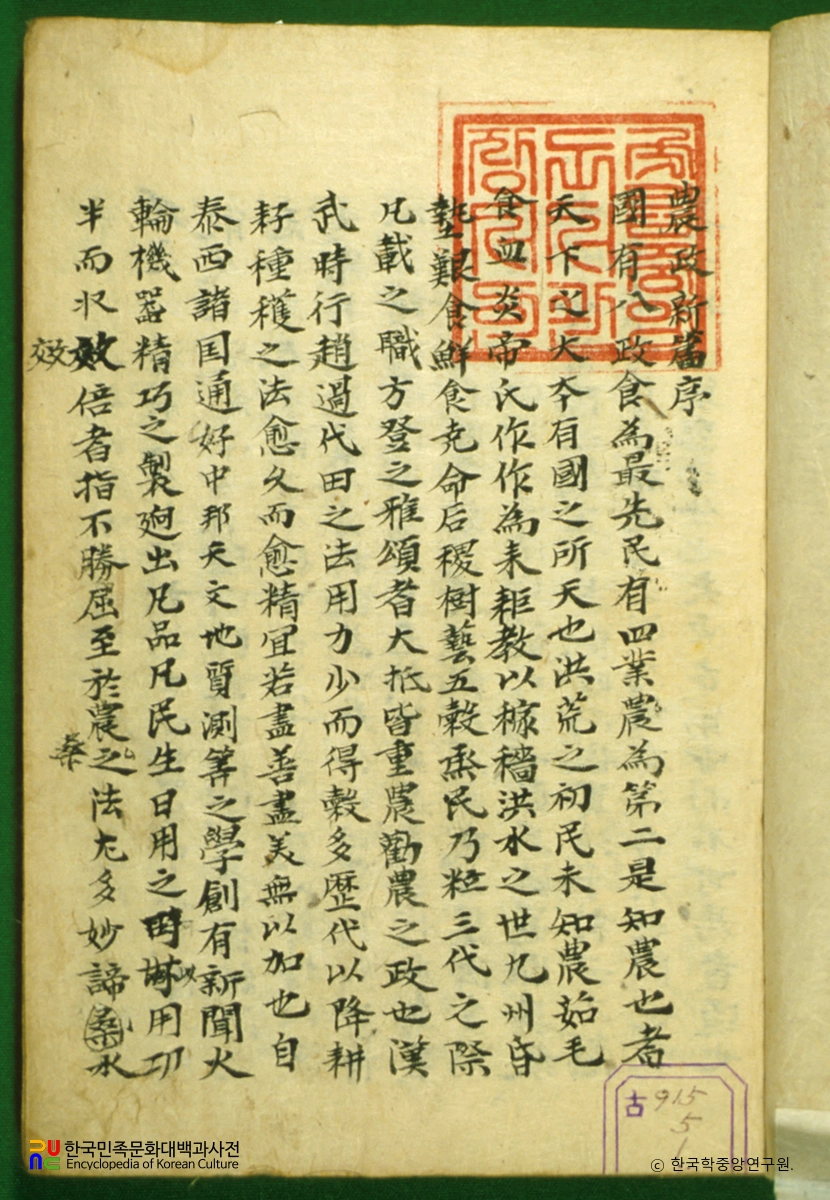 農政新篇序
國有八政食為最先民有四業農為第二是知農也者
天下之大夲有國之所天也洪荒之初民未知農茹毛
食血炎帝氏作作為耒耟教以稼穡洪水之世九州昏
墊艱食鮮食尭命后稷樹藝五穀烝民乃粒三代之際
凡載之職方登之雅頌者大抵皆重農勸農之政也漢
武時行趙過代田之法用力少而得穀多歷代以降耕
耔種穫之法愈久而愈精宜若盡善盡美無以加也自
泰西諸国通好中邦天文地質測筭之學創有新聞火
輪機器精巧之製逈出凡品凡民生日用之用功
半而収效倍者指不勝屈至於農之法尤多妙諦桑水
效
桑
古
915
5
1
한국민족문화대백과사전
Encyclopedia of Korean Culture
© 한국학중앙연구원.